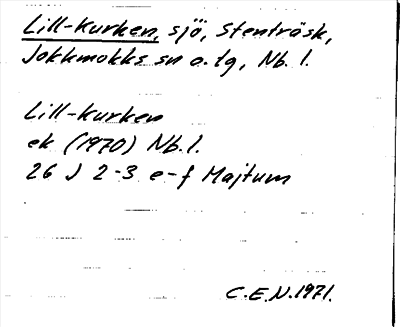 Lill-Kurken, sjö, Stenträsk,
Jokkmokks sn o. tg, Nb. l.
Lill-Kurken
ek (1970) Nb. l.
26 J 2-3 e-f Majtum
C.E.N. 1971.